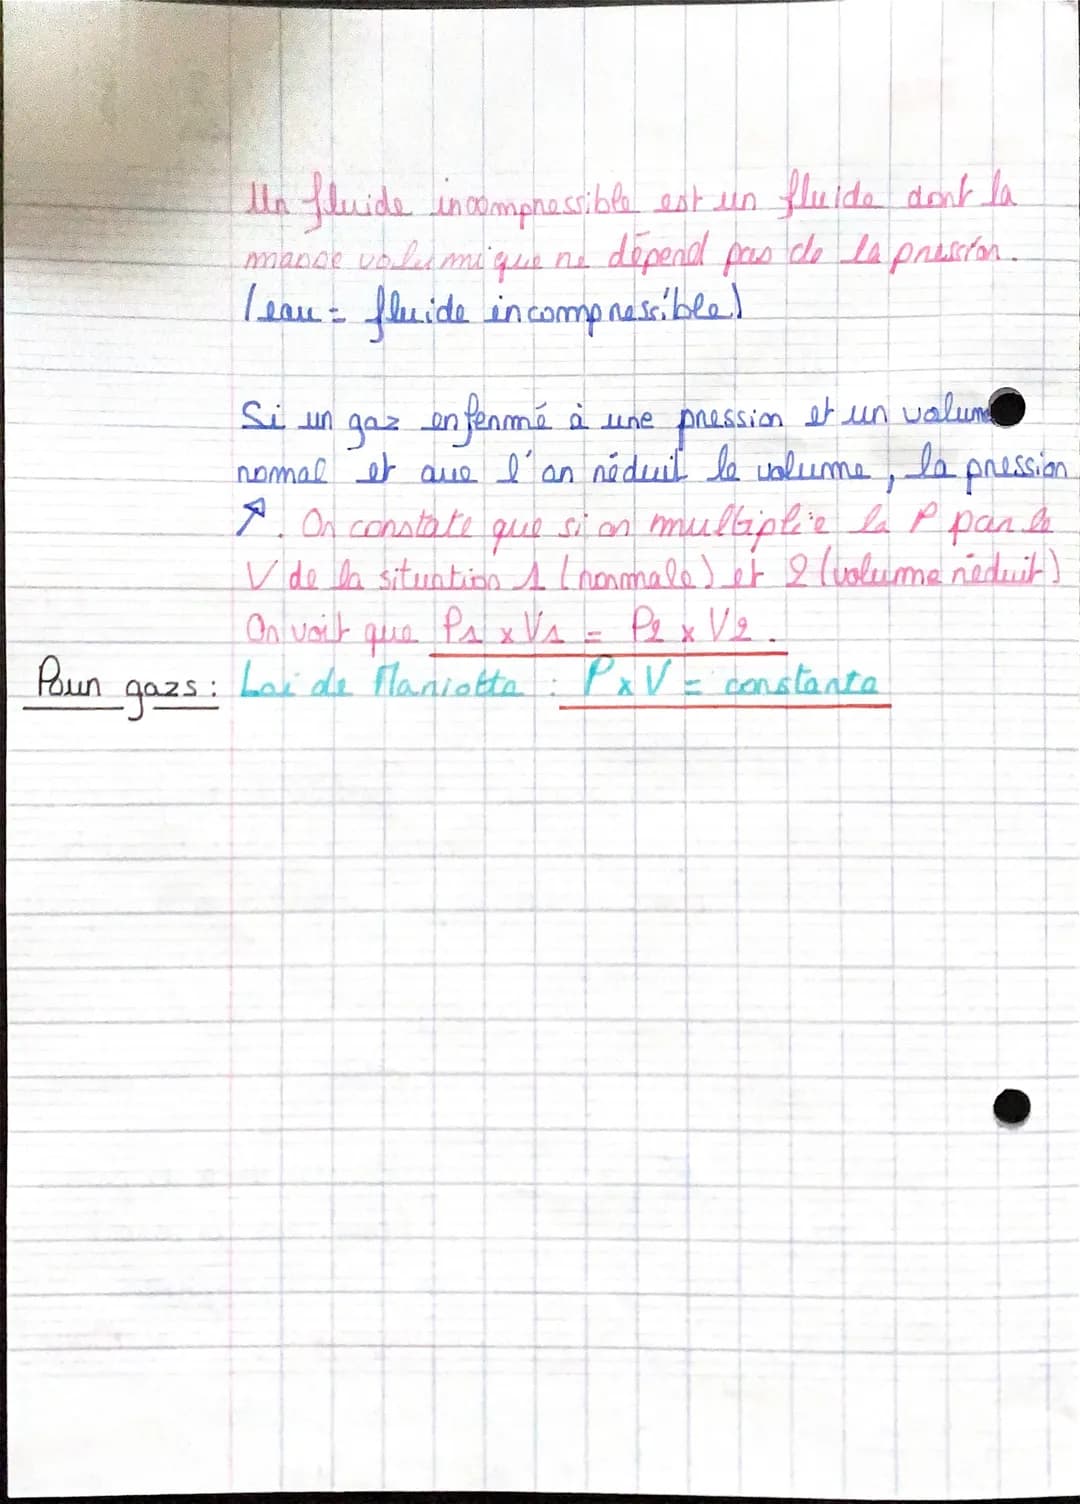 Un fluide incompressible est un fluide dont la
masse volumique ne dépend pas de la pression.
(eau = fluide incompressible)
Si un gaz enfermé à une pression et un volume
normal et que l'on réduit le volume, la pression
↗. On constate que si on multiplie la P par le
V de la situation 1 (normale) et 2 (volume réduit)
On voit que P1 x V1 = P2 x V2.
Pour gazs : Loi de Mariotte : P x V = constante